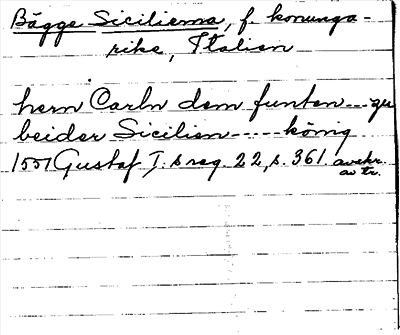 Bägge Sicilierna, f. konunga-
rike, Italien
hern Carln dem funten---zu
beider Sicilien-----könig
1551 Gustaf I:s reg. 22, s. 361. avskr.
av tr.